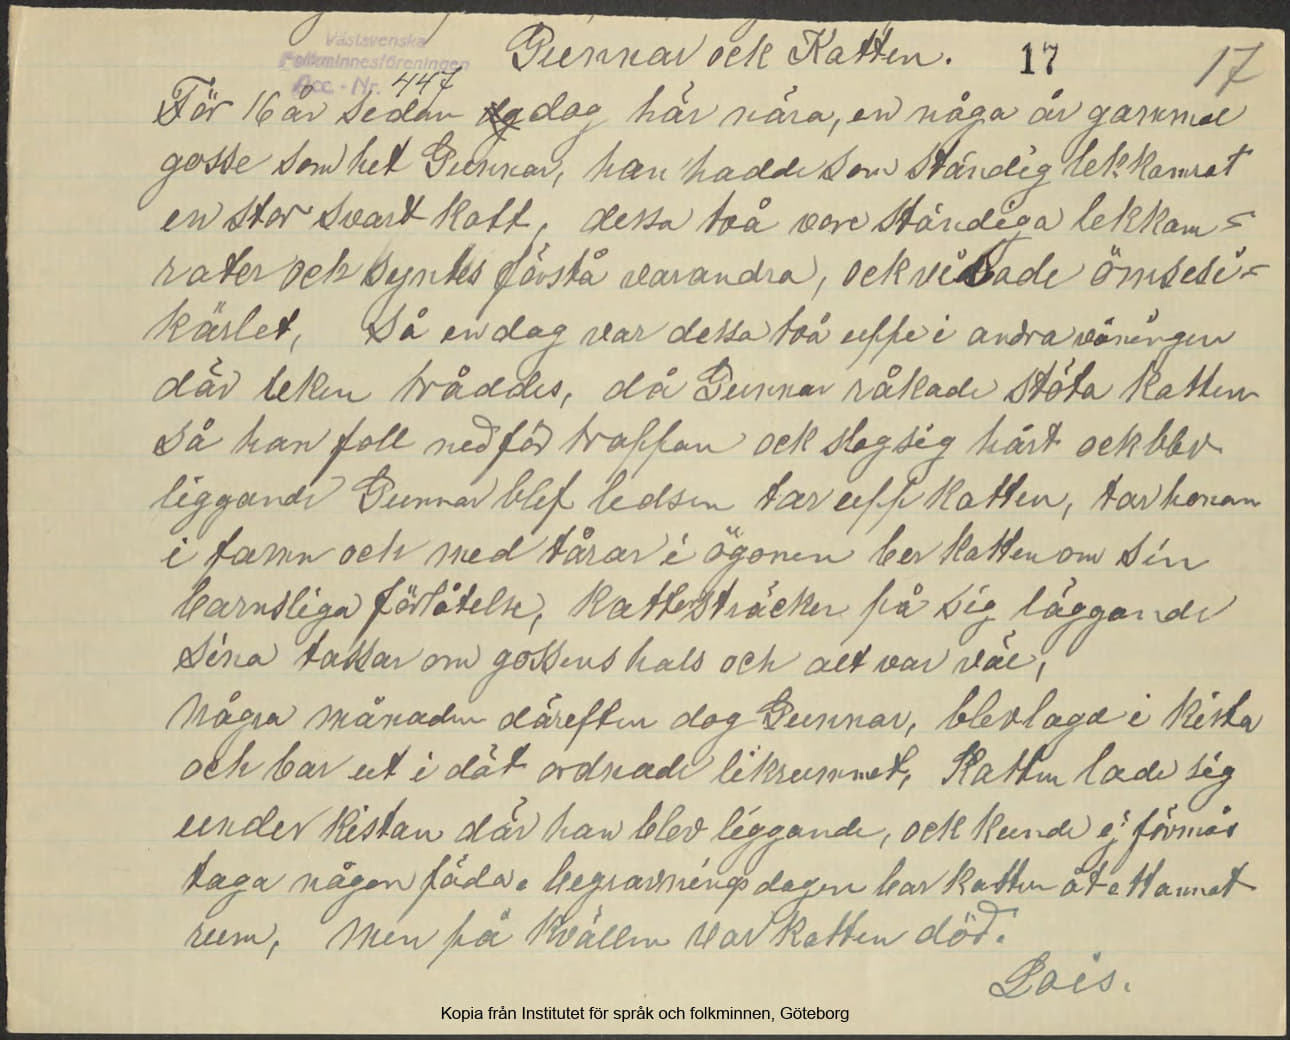 Västsvenska
Folkminnesföreningen
Acc. - Nr. 447
Gunnar ock Katten. 17 17
För 16 år sedan dog här nära, en någa år gammal
gosse som het Gunnar, han hadde som ständig lekkamrat
en stor svart katt, dessa två vore ständiga lekkam=
rater och syntes förstå varandra, ock visade ömsesi=
kärlet, Så en dag var dessa två uppe i andra våningen
där leken tråddes, då Gunnar råkade stöta katten
så han foll nedför trappan ock slog sig hårt ock blev
liggande Gunnar blef ledsen tar upp katten, tar honom
i famn och med tårar i ögonen ber katten om sin
barnsliga förlåtelse, Katten sträcker på sig läggande
sina tassar om gossens hals och alt var väl,
några månaden däreften dog Gunnar, blev lagd i kista
och bar ut i dät ordnade likrummet, Katten lade sig
under kistan där han blev liggande, ock kunde ej förmås
taga någon föda. begravningsdagen bar katten åt ett annat
rum, men på kvällen var katten död.
Lois.
Kopia från Institutet för språk och folkminnen, Göteborg